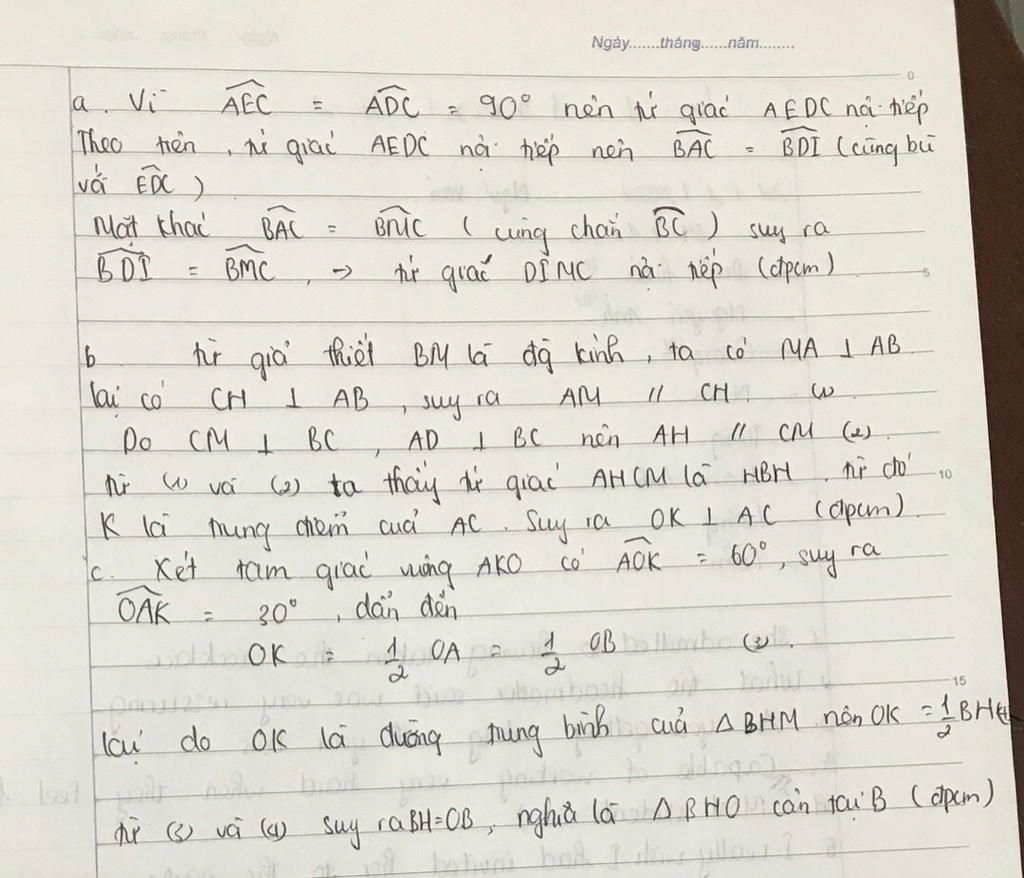 Ngày.......tháng......năm........
0
a. Vì $\widehat{AEC}$ = $\widehat{ADC}$ = 90° nên tứ giác AEDC nội tiếp
Theo trên, tứ giác AEDC nội tiếp nên $\widehat{BAC}$ = $\widehat{BDI}$ (cùng bù
với $\widehat{EDC}$)
Mặt khác $\widehat{BAC}$ = $\widehat{BMC}$ (cùng chắn $\widehat{BC}$) suy ra
$\widehat{BDI}$ = $\widehat{BMC}$, → tứ giác DIMC nội tiếp (đpcm)
5
b từ giả thiết BM là đg kính, ta có MA ⊥ AB
lại có CH ⊥ AB, suy ra AM // CH. (1)
Do CM ⊥ BC, AD ⊥ BC nên AH // CM (2).
từ (1) và (2) ta thấy tứ giác AHCM là HBH. từ đó
10
K là trung điểm của AC. Suy ra OK ⊥ AC (đpcm).
c. Xét tam giác vuông AKO có $\widehat{AOK}$ = 60°, suy ra
$\widehat{OAK}$ = 30°, dẫn đến
OK = $\frac{1}{2}$ OA = $\frac{1}{2}$ OB (3).
15
lại do OK là đường trung bình của Δ BHM nên OK = $\frac{1}{2}$ BH (4)
từ (3) và (4) suy ra BH=OB, nghĩa là Δ BHO cân tại B (đpcm)